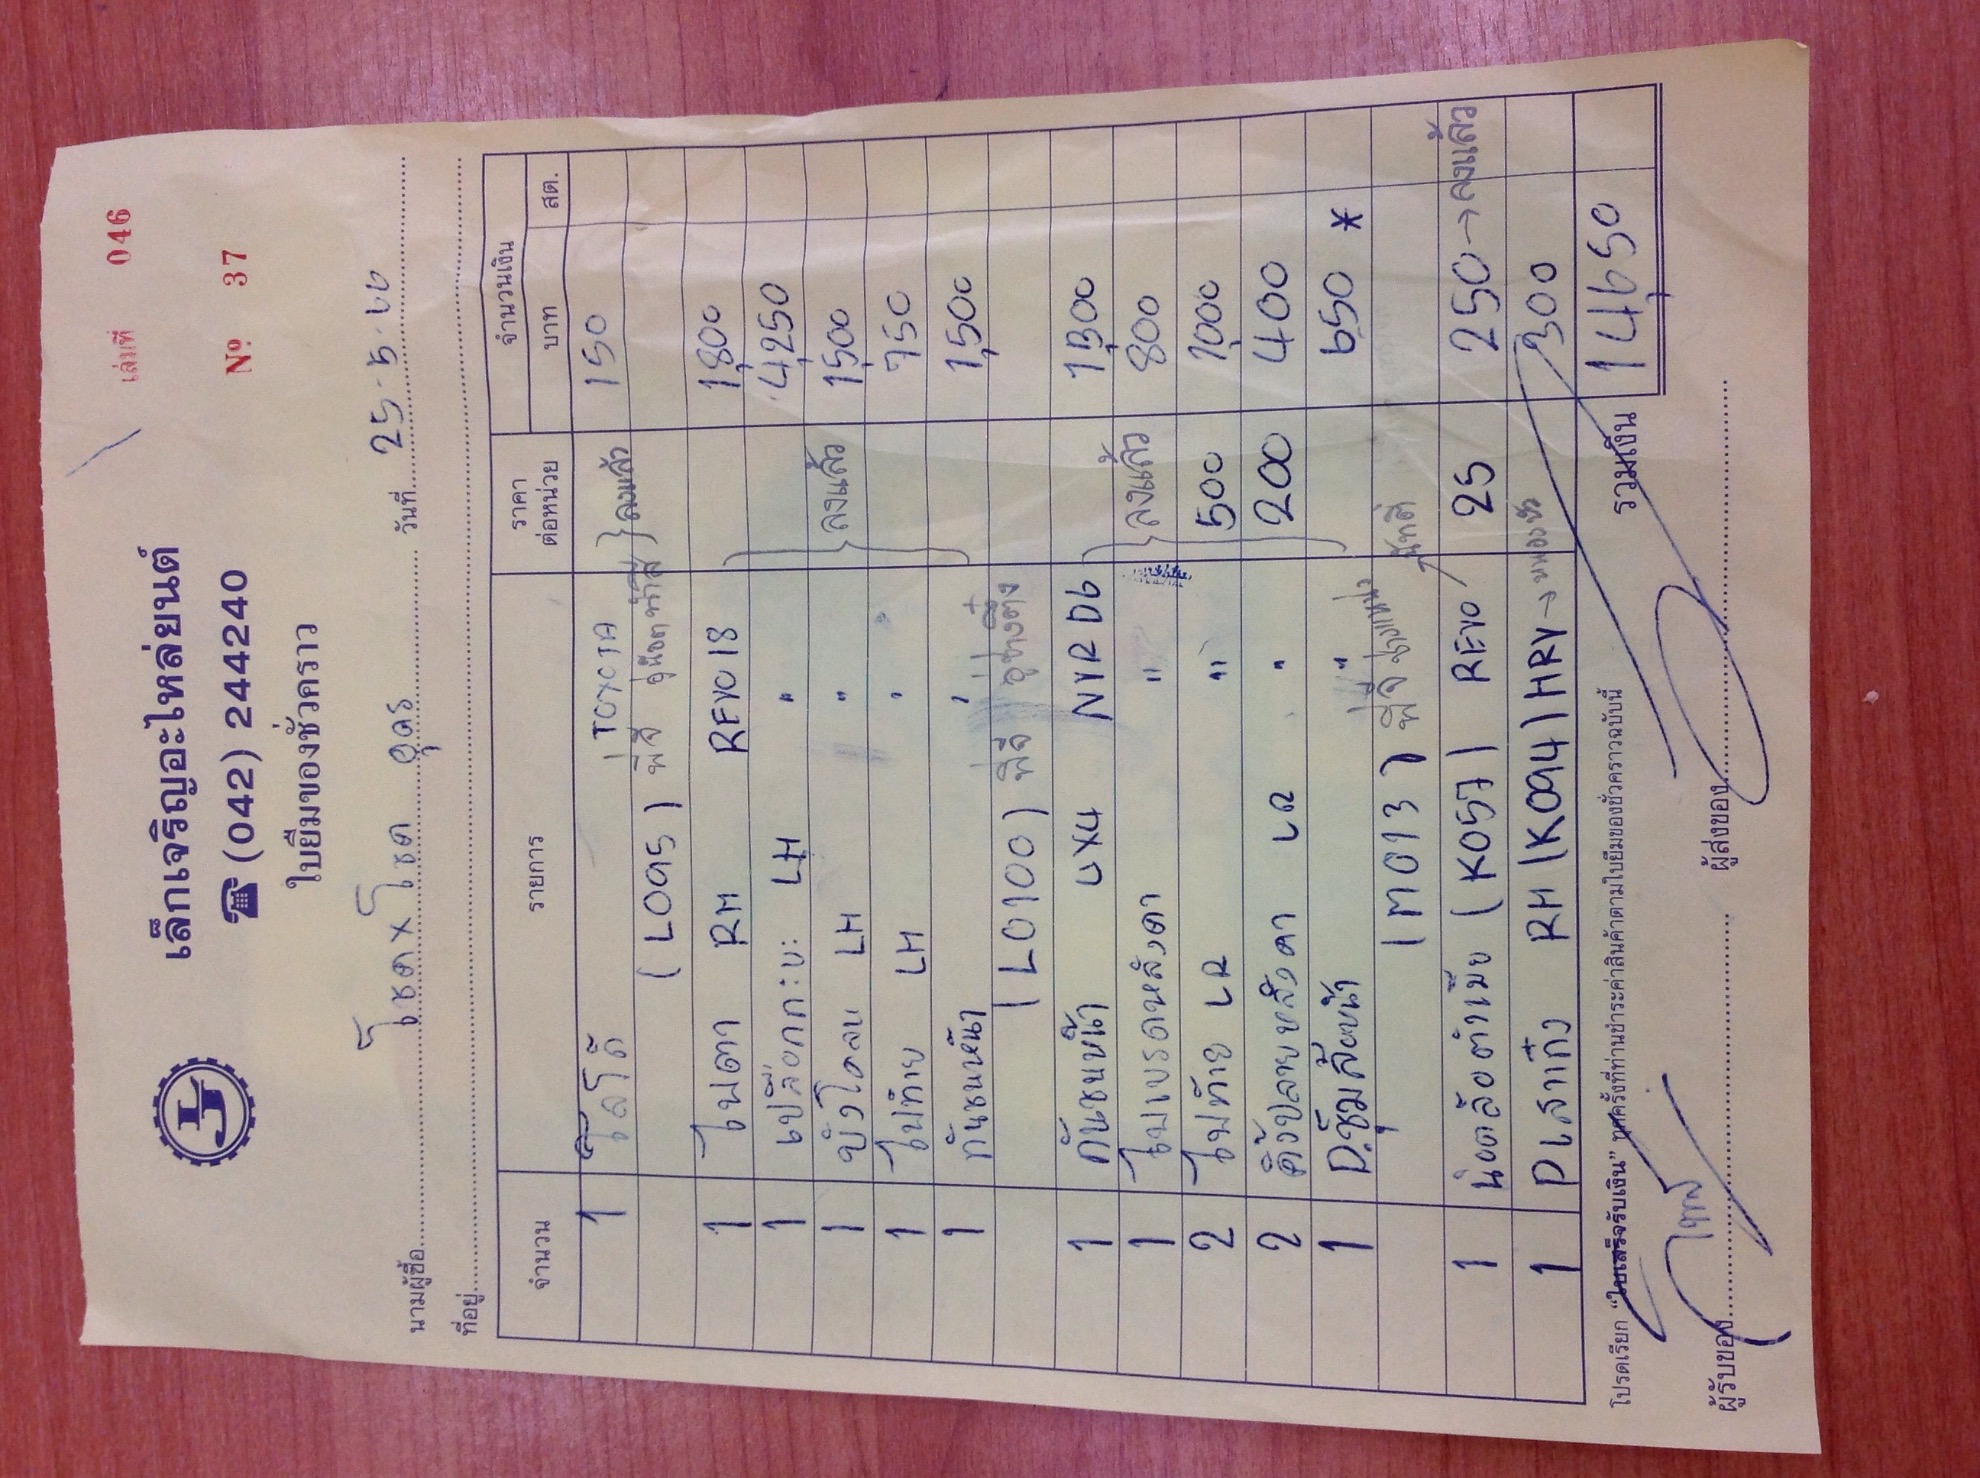 เล่มที่ 046
เล็กเจริญอะไหล่ยนต์
☎ (042) 244240
Nº 37
ใบยืมของชั่วคราว
นามผู้ซื้อ โชค x โชค อุดร วันที่ 25-5-66
ที่อยู่
จำนวน รายการ ราคาต่อหน่วย จำนวนเงิน
บาท สต.
1 โลโก้ TOYOTA 150
(L095) พี่จี ลงแล้ว
1 ไฟตา RH REVO 18 1,800
1 เปลือกกะบะ LH " 4,250
1 บังโคลน LH " ลงแล้ว 1,500
1 ไฟท้าย LH " 750
1 กันชนหน้า " 1,500
(L0100) พี่จี อู่ช่างติ่ง
1 กันชนหน้า 4x4 NVR D6 1,300
1 ไฟเบรคหลังคา " ลงแล้ว 800
2 ไฟท้าย LR " 500 1,000
2 คิ้วปลายหลังคา LR " 200 400
1 D.ซุ้มล้อหน้า " 650 *
(M013) พี่จี
1 น็อตล้อตัวเมีย (K057) REVO 25 250 → ลงแล้ว
1 Dเสาเก๋ง RH (K094) HRV → 300
รวมเงิน 14,650
โปรดเรียก "ใบเสร็จรับเงิน" ทุกครั้งที่ท่านชำระค่าสินค้าตามใบยืมของชั่วคราวฉบับนี้
ผู้รับของ ผู้ส่งของ